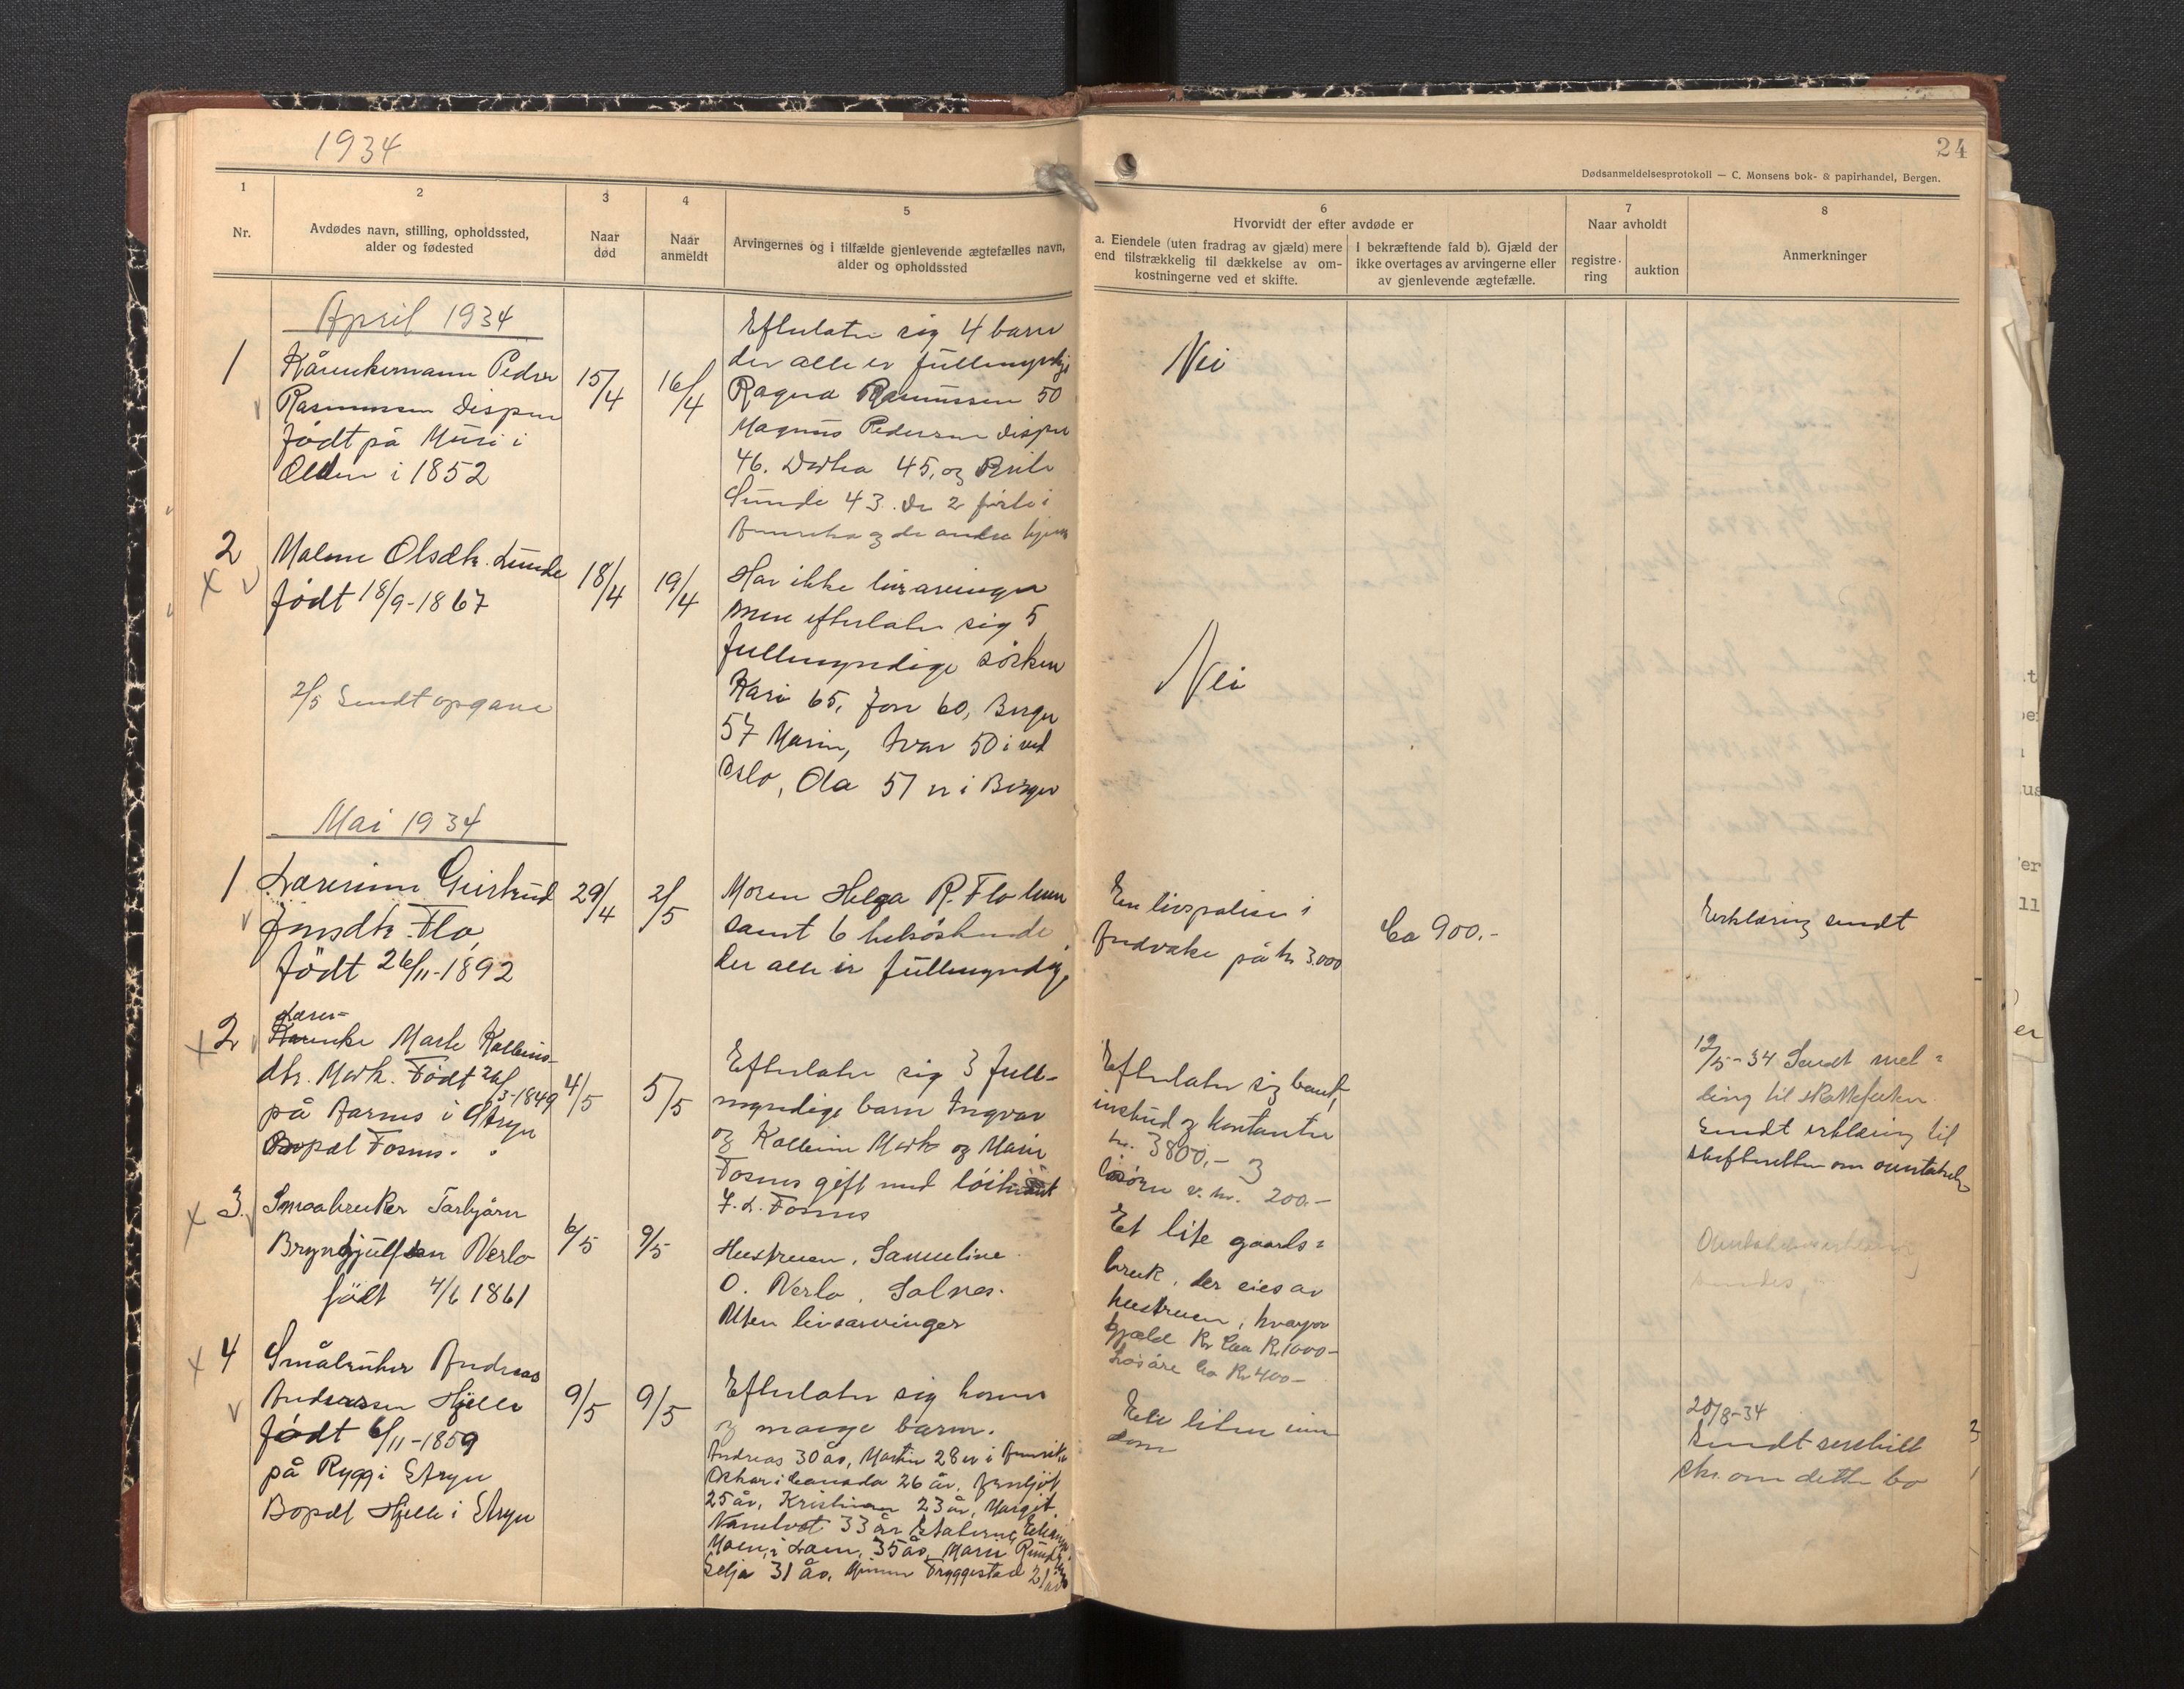 1934
24
Dødsanmeldelsesprotokoll — C. Monsens bok- & papirhandel, Bergen.
1
Nr.
2
Avdødes navn, stilling, opholdssted,
alder og fødested
3
Naar
død
4
Naar
anmeldt
5
Arvingernes og i tilfælde gjenlevende ægtefælles navn,
alder og opholdssted
6
Hvorvidt der efter avdøde er
a. Eiendele (uten fradrag av gjæld) mere
end tilstrækkelig til dækkelse av om-
kostningerne ved et skifte.
I bekræftende fald b). Gjæld der
ikke overtages av arvingerne eller
av gjenlevende ægtefælle.
7
Naar avholdt
registre-
ring
auktion
8
Anmerkninger
April 1934
1
Kårenkemann Peder
Rasmussen Dispen
født på Muri i
Olden i 1852
15/4
16/4
Efterlater sig 4 barn
der alle er fullmyndige
Ragna Rasmussen 50
Magnus Pedersen Dispen
46. Dortea 45, og
Sunde 43. De 2 første i
Amerika og de andre hjem
Nei
2
Malene Olsdtr. Lunde
født 18/9-1867
2/5 Sendt opgave
18/4
19/4
Har ikke livsarvinger
men efterlater sig 5
fullmyndige sösken
Kari 65, Jon 60, Berge
57 Ivar 50 i ved
Oslo, Ola 51 er i Bergen
Nei
Mai 1934
1
Lærerinne Geirtrud
Jonsdtr. Flo,
født 26/11-1892
29/4
2/5
Moren Helga R. Flo
samt 6 helsöskende
der alle er fullmyndige
En livspolise i
Andvake på kr 3.000
Ca 900.-
Erklæring sendt
2
Lærer-
enke Marte Kolbeins-
dtr. Mork. Født 26/3-1849
på Aarnes i Stryn
Bopæl Fosnes.
4/5
5/5
Efterlater sig 3 full-
myndige barn Ingvar
og Kolbein Mork og Marie
Fosnes gift med löitnant
Fosnes
Efterlater sig bank-
inskud og kontanter
kr. 3800,-
lösøre v. kr. 200.-
12/5-34 Sendt mel=
ding til skattefuten.
Sendt erklæring til
skifteretten om overtakelse
3.
Smaabruker Torbjørn
Brynhjulfsen Verlo
født 4/6 1861
6/5
9/5
Hustruen, Samueline
O. Verlo, Solnes.
Uten livsarvinger
Et lite gaards=
bruk, der eies av
hustruen, hvorpaa
gjæld Kr Caa Kr 1000-
Løsøre Ca Kr 400-
4
Småbruker Andreas
Andreassen Hjelle
født 6/11-1859
på Rygg i Stryn
Bopæl Hjelle i Stryn
9/5
9/5
Efterlater sig kone
og mange barn.
Andreas 30 år, Martin 28 er i Amerika
Oskar i Canada 26 år,
25 år, Kristian 23 år, Margit
33 år
Moen i Lom, 35 år, Marie
Selja 31 år, Tryggestad 21 år
En liten eien
dom
20/8-34
Sendt særskilt
skr. om dette bo